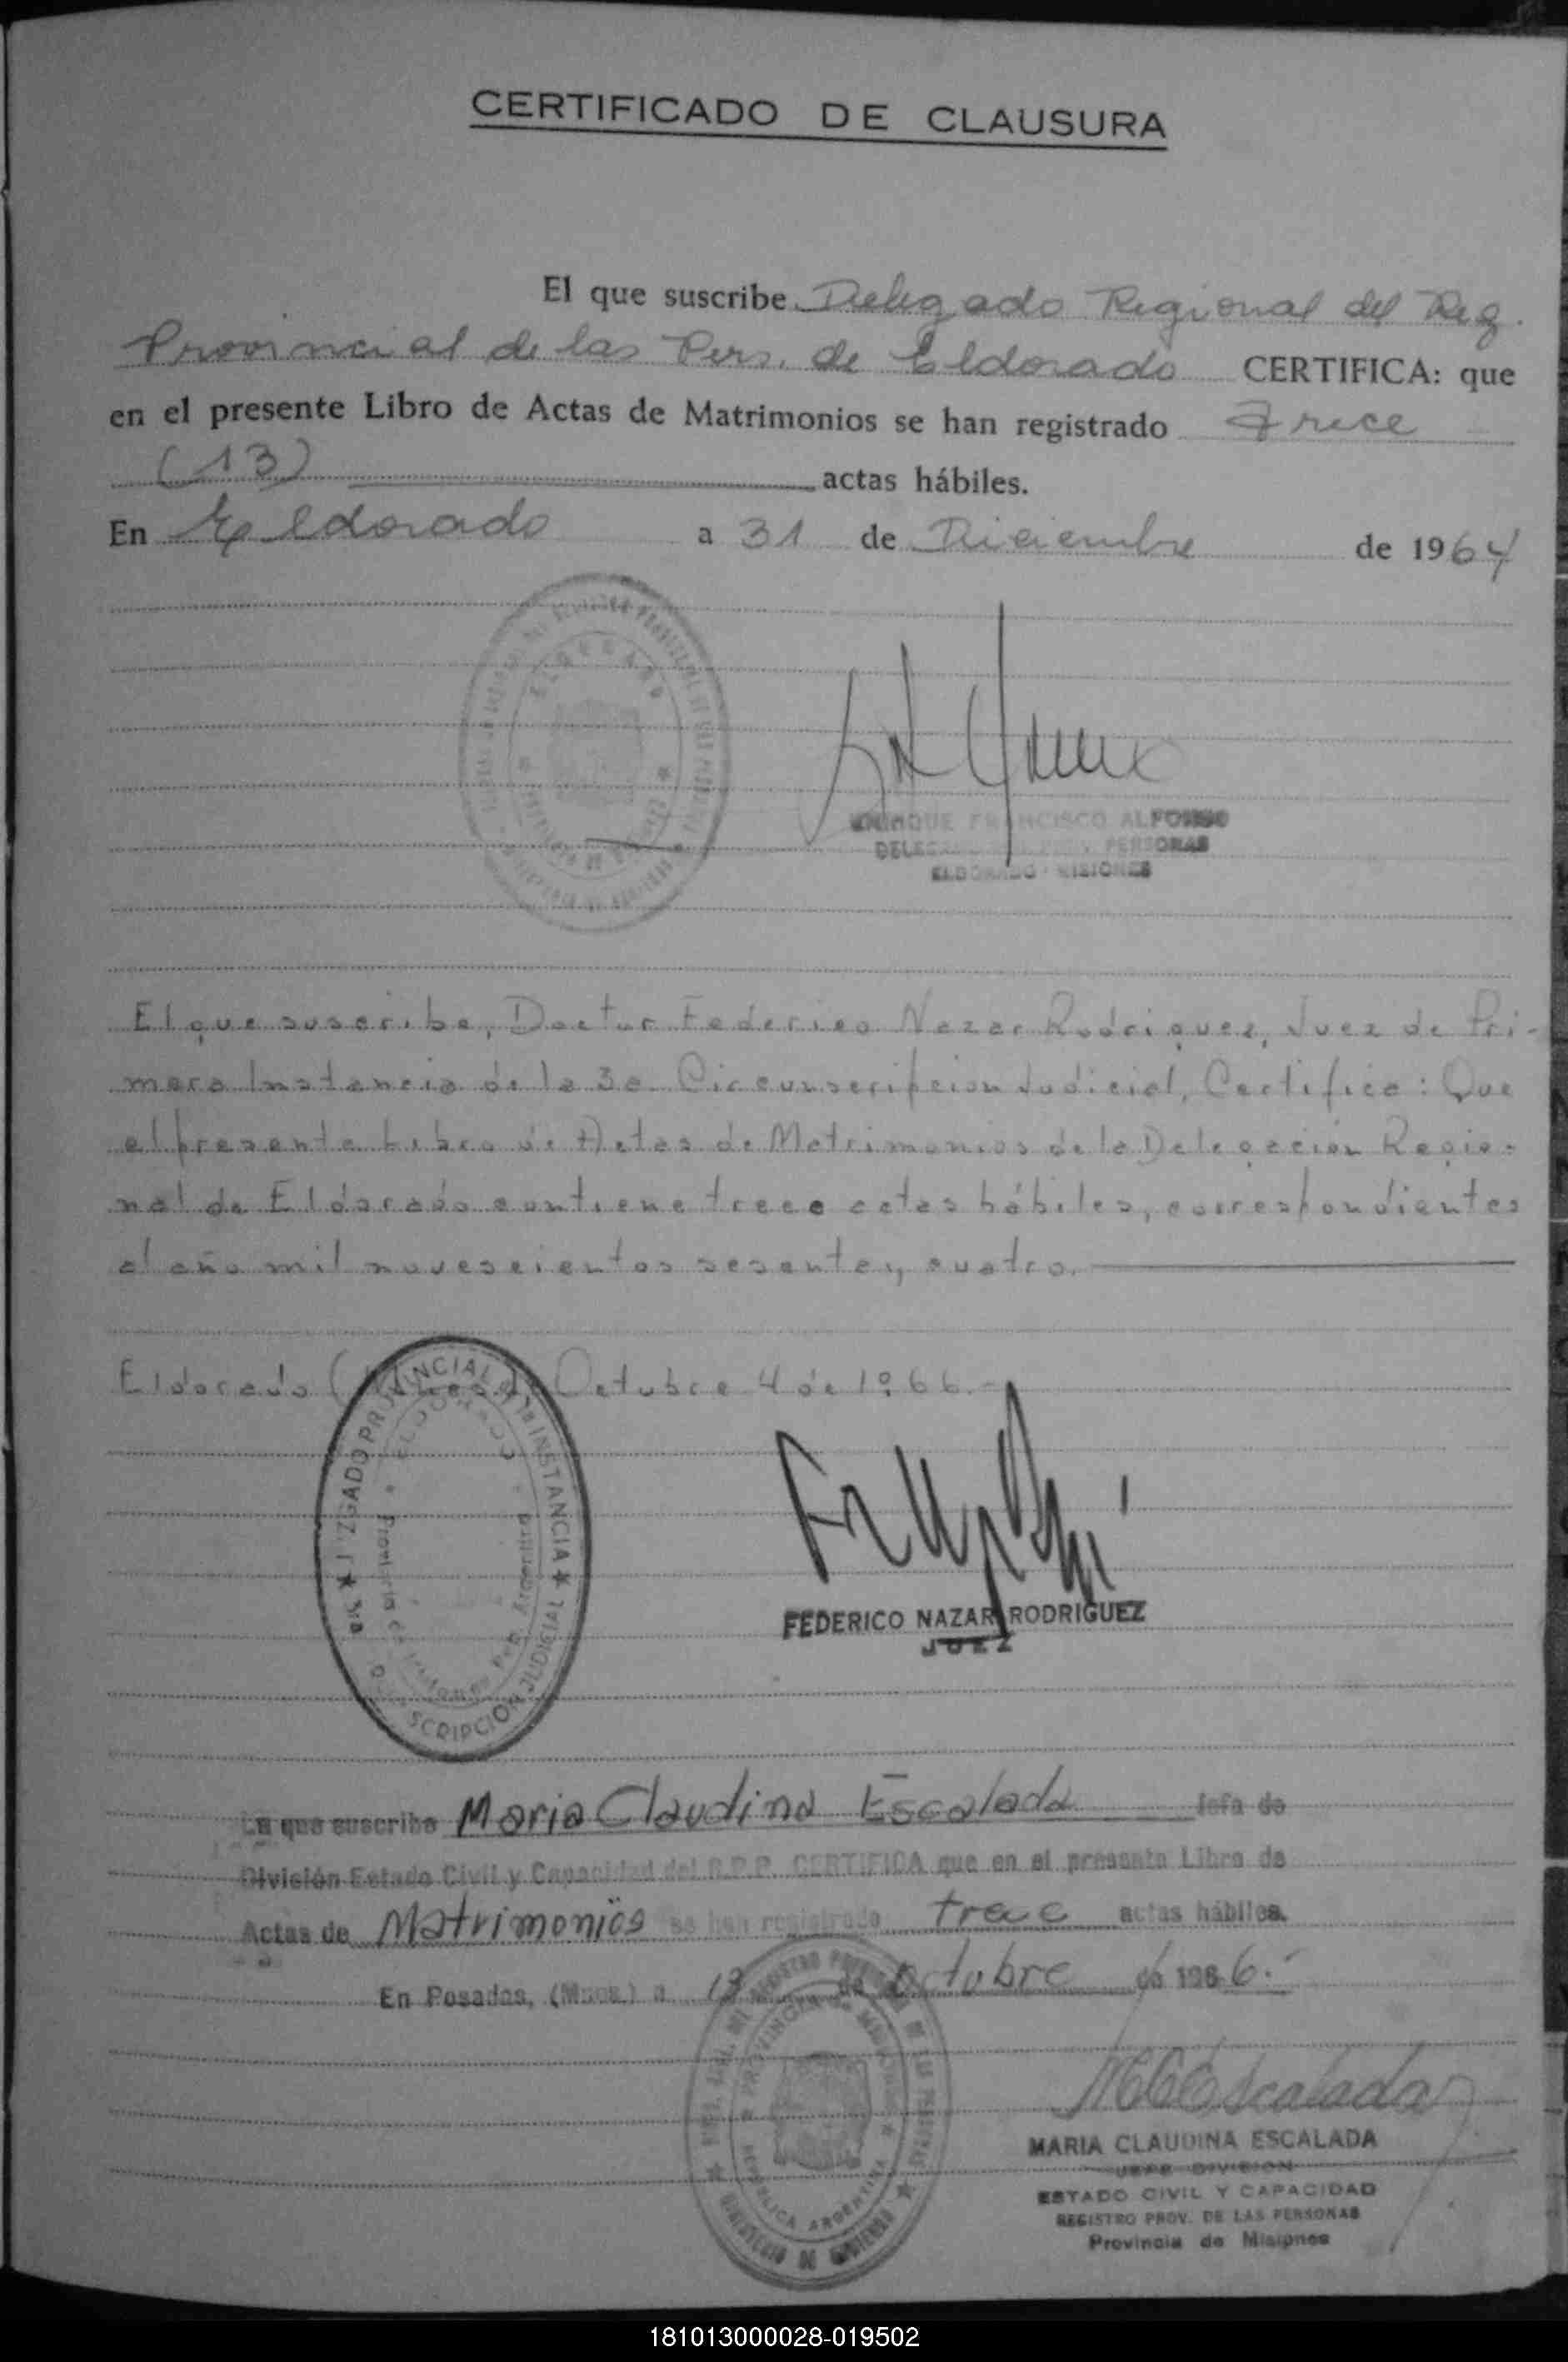 CERTIFICADO DE CLAUSURA
El que suscribe Delegado Regional del Reg.
Provincial de las Pers. de Eldorado CERTIFICA: que
en el presente Libro de Actas de Matrimonios se han registrado Trece
(13) actas hábiles.
En Eldorado a 31 de Diciembre de 1964
FRANCISCO ALFONSO
PERSONAS
ELDORADO - MISIONES
El que suscribe, Doctor Federico Nazar Rodriguez, Juez de Pri-
mera Instancia de la 3a Circunscripcion Judicial, Certifica: Que
el presente Libro de Actas de Matrimonios de la Delegación Regio-
nal de Eldorado contiene trece actas hábiles, correspondientes
al año mil novescientos sesenta y cuatro.
Eldorado ( Octubre 4 de 1966.-
PROVINCIAL INSTANCIA
JUDICIAL
ELDORADO
FEDERICO NAZAR RODRIGUEZ
JUEZ
La que suscribe Maria Claudina Escalada Jefa de
División Estado Civil y Capacidad del R.P.P. CERTIFICA que en el presente Libro de
Actas de Matrimonios se han registrado trece actas hábiles.
En Posadas, (Mnes.) a 13 de Octubre de 1966.-
PROVINCIA DE
REPUBLICA ARGENTINA
MINISTERIO DE GOBIERNO
MCEscalada
MARIA CLAUDINA ESCALADA
JEFE DIVISION
ESTADO CIVIL Y CAPACIDAD
REGISTRO PROV. DE LAS PERSONAS
Provincia de Misiones
181013000028-019502